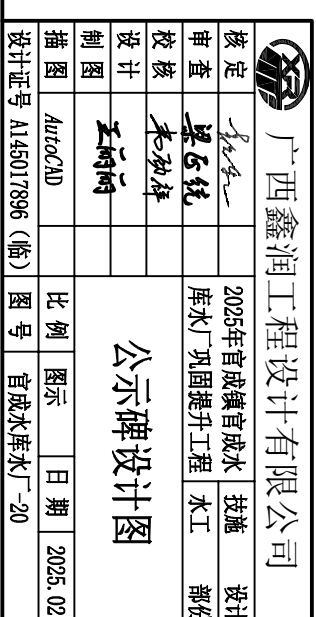 广西鑫润工程设计有限公司
核定
2025年官成镇官成水库水厂巩固提升工程
技施 设计
审查 梁正统
水工 部份
校核
设计 王雨雨
公示碑设计图
制图
描图 AutoCAD
比例 图示 日期 2025.02
设计证号 A145017896（临）
图号 官成水库水厂-20